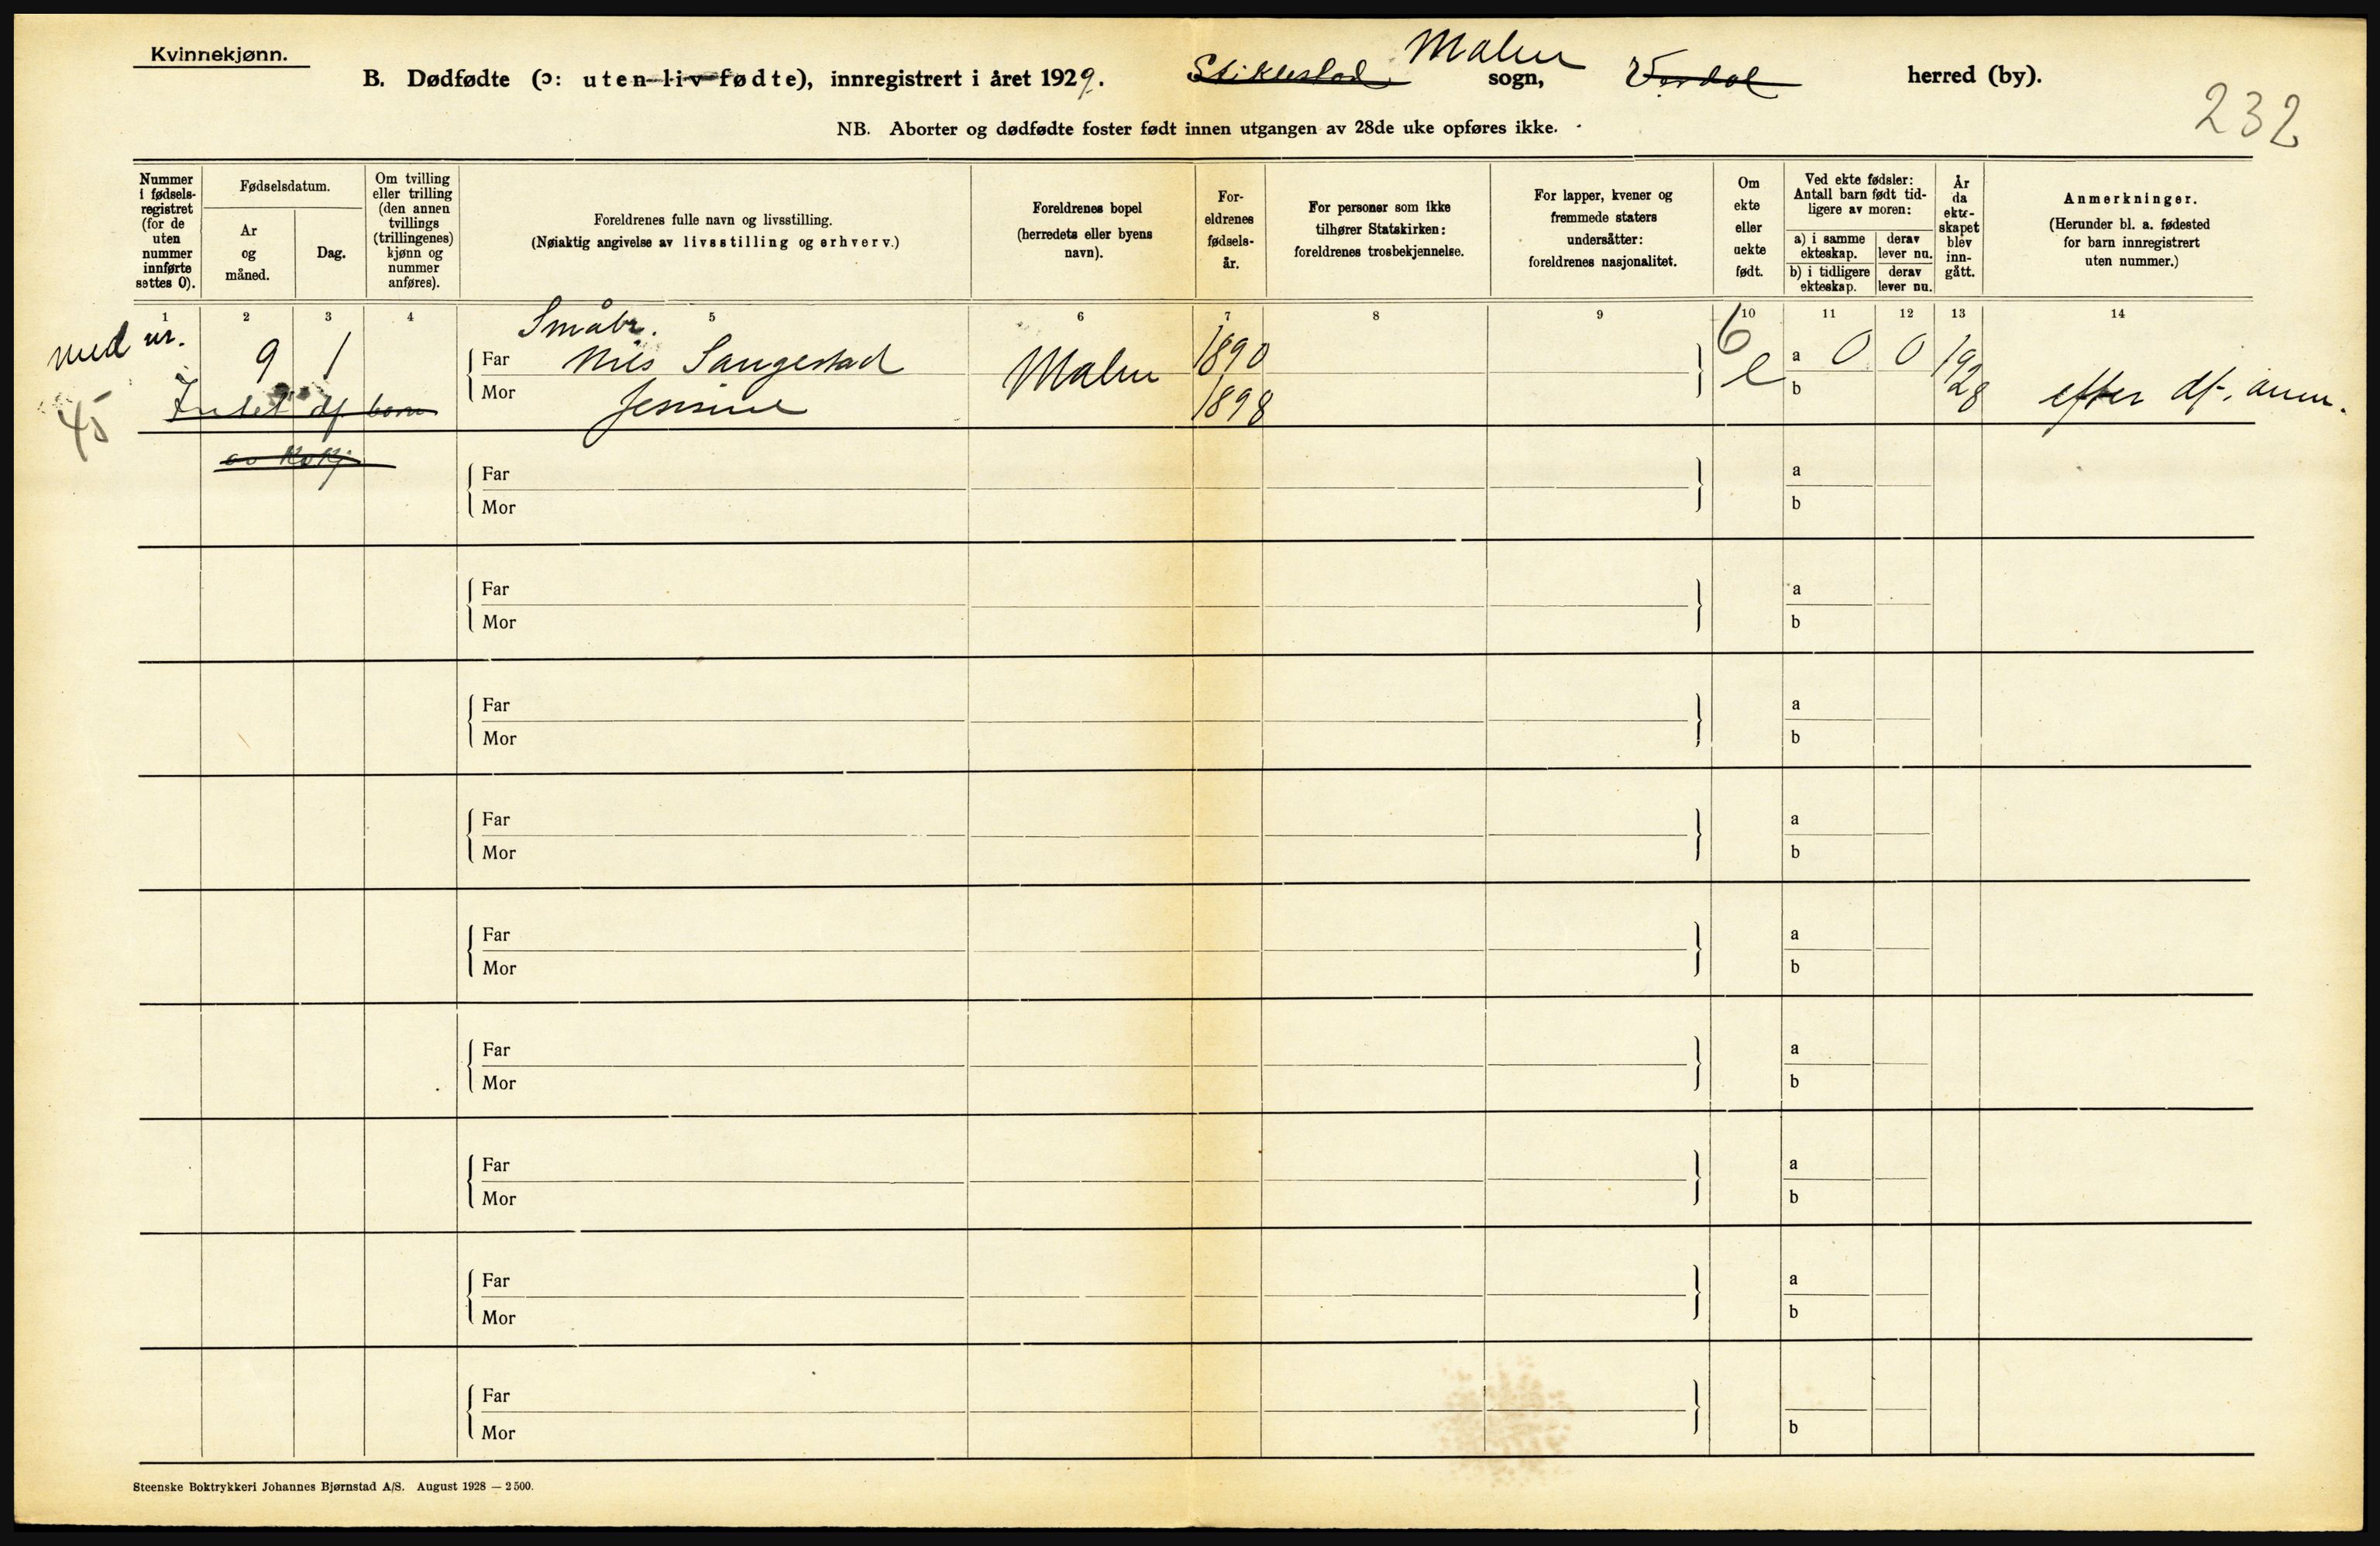 Kvinnekjønn.
B. Dødfødte (ɔ: uten liv fødte), innregistrert i året 1929. Stiklestad Malm sogn, Verdal herred (by).
232
NB. Aborter og dødfødte foster født innen utgangen av 28de uke opføres ikke.
Nummer i fødsels-registret (for de uten nummer innførte settes 0).
Fødselsdatum.
År og måned.
Dag.
Om tvilling eller trilling (den annen tvillings (trillingenes) kjønn og nummer anføres).
Foreldrenes fulle navn og livsstilling.
(Nøiaktig angivelse av livsstilling og erhverv.)
Foreldrenes bopel (herredets eller byens navn).
For-eldrenes fødsels-år.
For personer som ikke tilhører Statskirken: foreldrenes trosbekjennelse.
For lapper, kvener og fremmede staters undersåtter: foreldrenes nasjonalitet.
Om ekte eller uekte født.
Ved ekte fødsler: Antall barn født tid-ligere av moren:
a) i samme ekteskap.
derav lever nu.
b) i tidligere ekteskap.
derav lever nu.
År da ekte-skapet blev inn-gått.
Anmerkninger.
(Herunder bl. a. fødested for barn innregistrert uten nummer.)
1 2 3 4 5 6 7 8 9 10 11 12 13 14
Småbr.
med nr. 9 1 Far Nils Sangestad Malm 1890 6 e a 0 0 1928
45 Intet df barn Mor Jensine 1898 b efter df. anm.
Far a
Mor b
Far a
Mor b
Far a
Mor b
Far a
Mor b
Far a
Mor b
Far a
Mor b
Far a
Mor b
Far a
Mor b
Far
Mor b
Steenske Boktrykkeri Johannes Bjørnstad A/S. August 1928 — 2500.